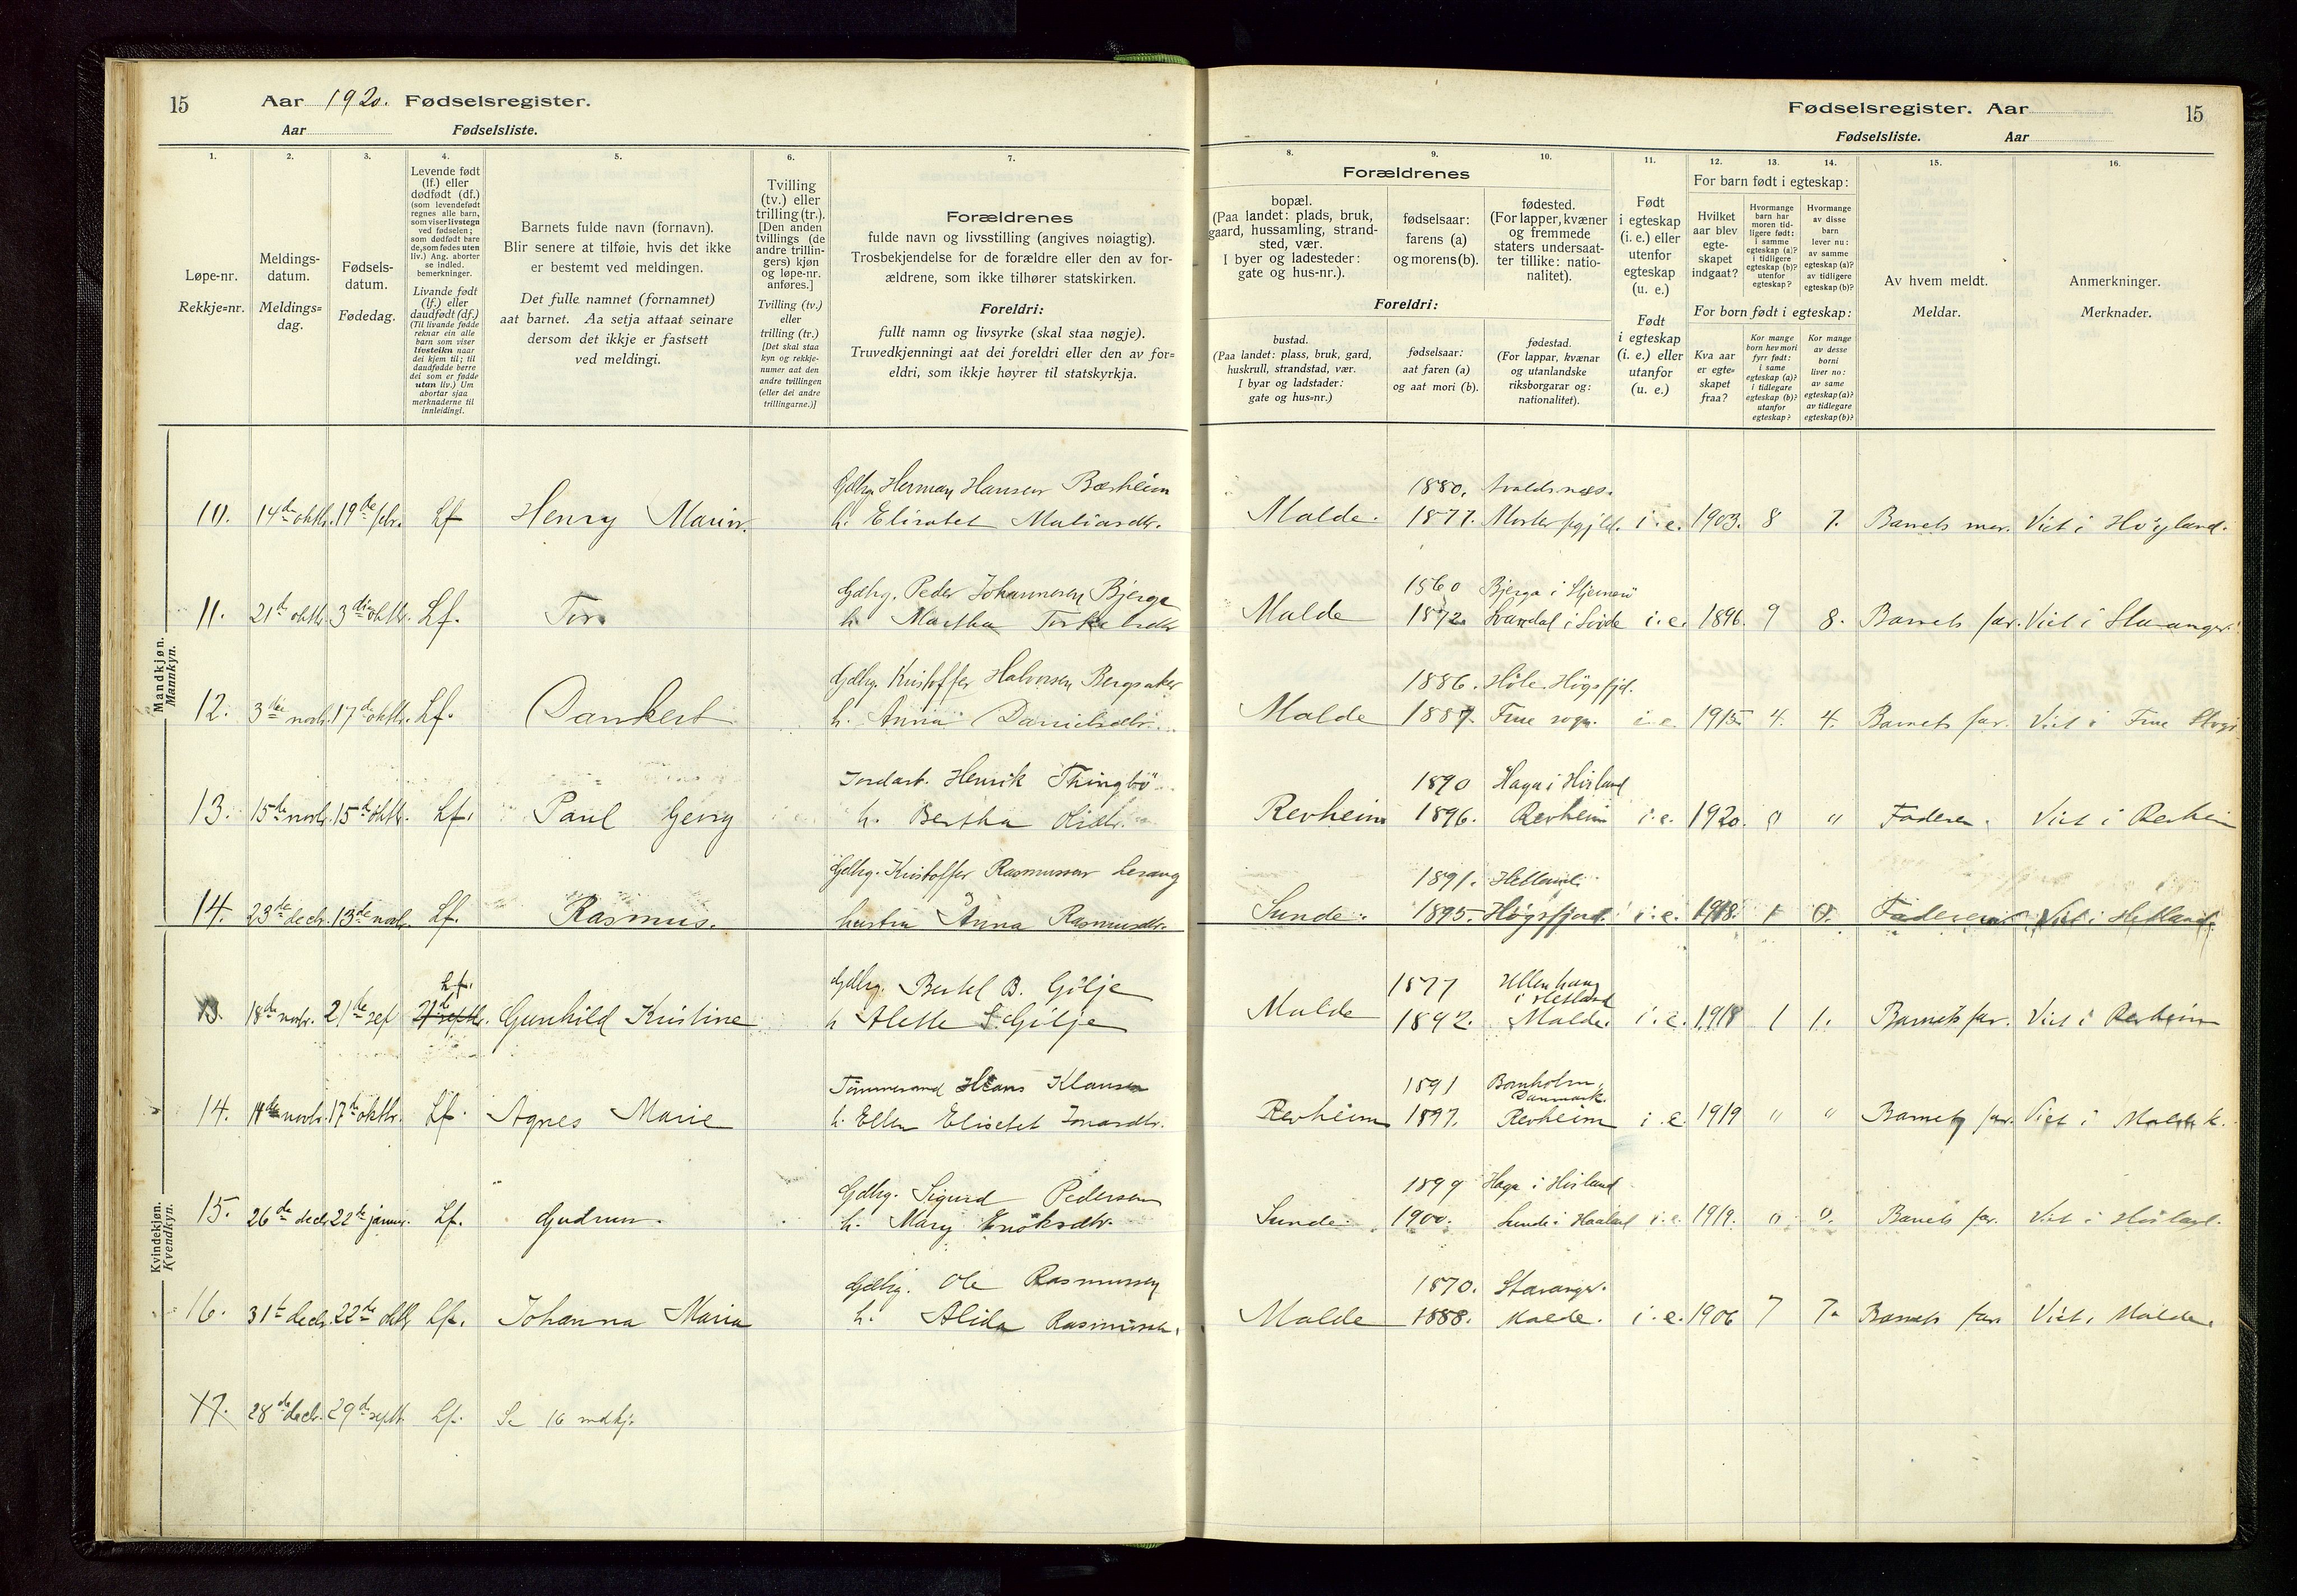 15
Aar 1920. Fødselsregister.
Aar Fødselsliste.
Fødselsregister. Aar
15
Fødselsliste. Aar
1.
2.
3.
4.
5.
6.
7.
8.
9.
10.
11.
12.
13.
14.
15.
16.
Løpe-nr.
Rekkje=nr.
Meldings-
datum.
Meldings=
dag.
Fødsels-
datum.
Fødedag.
Levende født
(lf.) eller
dødfødt (df.)
(som levendefødt
regnes alle barn,
som viser livstegn
ved fødselen;
som dødfødt bare
de, som fødes uten
liv.) Ang. aborter
se indled.
bemerkninger.
Livande født
(lf.) eller
daudfødt (df.)
(Til livande fødde
reknar ein alle
barn som viser
livsteikn naar
dei kjem til; til
daudfødde berre
dei som er fødde
utan liv.) Um
abortar sjaa
merknaderne til
innleidingi.
Barnets fulde navn (fornavn).
Blir senere at tilføie, hvis det ikke
er bestemt ved meldingen.
Det fulle namnet (fornamnet)
aat barnet. Aa setja attaat seinare
dersom det ikkje er fastsett
ved meldingi.
Tvilling
(tv.) eller
trilling (tr.).
[Den anden
tvillings (de
andre trillin-
gers) kjøn
og løpe-nr.
anføres.]
Tvilling (tv.)
eller
trilling (tr.)
[Det skal staa
kyn og rekkje-
numer aat den
andre tvillingen
(eller dei andre
trillingarne.)]
Forældrenes
fulde navn og livsstilling (angives nøiagtig).
Trosbekjendelse for de forældre eller den av for-
ældrene, som ikke tilhører statskirken.
Foreldri:
fullt namn og livsyrke (skal staa nøgje).
Truvedkjenningi aat dei foreldri eller den av for=
eldri, som ikkje høyrer til statskyrkja.
Forældrenes
bopæl.
(Paa landet: plads, bruk,
gaard, hussamling, strand-
sted, vær.
I byer og ladesteder:
gate og hus-nr.).
fødselsaar:
farens (a)
og morens (b).
fødested.
(For lapper, kvæner
og fremmede
staters undersaat-
ter tillike: natio-
nalitet).
Foreldri:
bustad.
(Paa landet: plass, bruk, gard,
huskrull, strandstad, vær.
I byar og ladstader:
gate og hus=nr.)
fødselsaar:
aat faren (a)
og aat mori (b).
fødestad.
(For lappar, kvænar
og utanlandske
riksborgarar og:
nationalitet).
Født
i egteskap
(i. e.) eller
utenfor
egteskap
(u. e.)
Født
i egteskap
(i. e.) eller
utanfor
(u. e.)
For barn født i egteskap:
Hvilket
aar blev
egte-
skapet
indgaat?
Hvormange
barn har
moren tid-
ligere født:
i samme
egteskap (a)?
i tidligere
egteskap (b)?
utenfor
egteskap?
Hvormange
av disse
barn
lever nu:
av samme
egteskap (a)?
av tidligere
egteskap (b)?
For born født i egteskap:
Kva aar
er egte=
skapet
fraa?
Kor mange
born hev mori
fyrr født:
i same
egteskap (a)?
i tidlegare
egteskap (b)?
utanfor
egteskap?
Kor mange
av desse
borni
liver no:
av same
egteskap (a)?
av tidlegare
egteskap (b)?
Av hvem meldt.
Meldar.
Anmerkninger.
Merknader.
Mandkjøn.
Mannkyn.
Gdbg. Herman Hansen Bærheim 1880.
10. 14de oktbr. 19de febr. Lf Henry Marin. h. Elisabet Matiasdtr. Malde. 1877. i. e. 1903. 8 7. Barnets mor. Viet i Høyland.
Gdbg. Peder Johannesen Bjerga 1860 Bjerga i Stjernerö
11. 21de oktbr. 3die oktbr. Lf. Tor. h. Martha Malde 1872. i. e. 1896. 9 8. Barnets far. Viet i Stavanger.
Gdbg. Kristoffer Halvorsen Bergsaker 1886. Höle Högsfjd.
12. 3die novbr. 17de oktbr. Lf. Dankert h. Anna Danielsdtr. Malde 1887. sogn. i. e. 1915 4. 4. Barnets far. Viet i
Jordarb. Henrik Thingbö 1890 Haga i Hörland
13. 15de novbr. 15de oktbr. Lf. Paul Georg h. Bertha Revheim 1896. Revheim i. e. 1920. " " Faderen. Viet i Revheim
Gdbg. Kristoffer Rasmussen 1891. Hetland.
14. 23de decbr. 13de novbr. Lf. Rasmus. hustru Anna Rasmusdtr. Sunde. 1895. Högsfjord. i. e. 1918. 1 0. Faderen Viet i Hetland.
Kvindekjøn.
Kvendkyn.
Lf. Gdbg. Bertel B. Gilje 1877 i Hetland
13. 18de novbr. 21de sep 21 septbr. Gunhild Kristine h Alette S. Gilje Malde 1892. Malde. i. e. 1918 1 1. Barnets far. Viet i Revheim
Tömmermand Hans Klausen 1891 Bornholm, Danmark.
14. novbr. 17de oktbr. Lf. Agnes Marie h. Ellen Elisebet Jonasdtr. Revheim 1897. Revheim i. e. 1919 " " Barnets far. Viet i Malde k.
Gdbg. Sigurd Pedersen 1899 Haga i Hörland
15. 26de decbr. 22de januar. Lf. Gudrun. h. Mary Enoksdtr. Sunde. 1900. Sunde i Haaland i. e. 1919. " 0. Barnets far. Viet i
Gdbg. Ole Rasmussen 1870. Stavanger.
16. 31te decbr. 22de oktbr Lf. Johanna Maria h. Alida Rasmussen. Malde 1888. Malde. i. e. 1906 7 7. Barnets far Viet i Malde.
17. 28de decbr. 29de septbr. Lf. Se 16 mdkj.